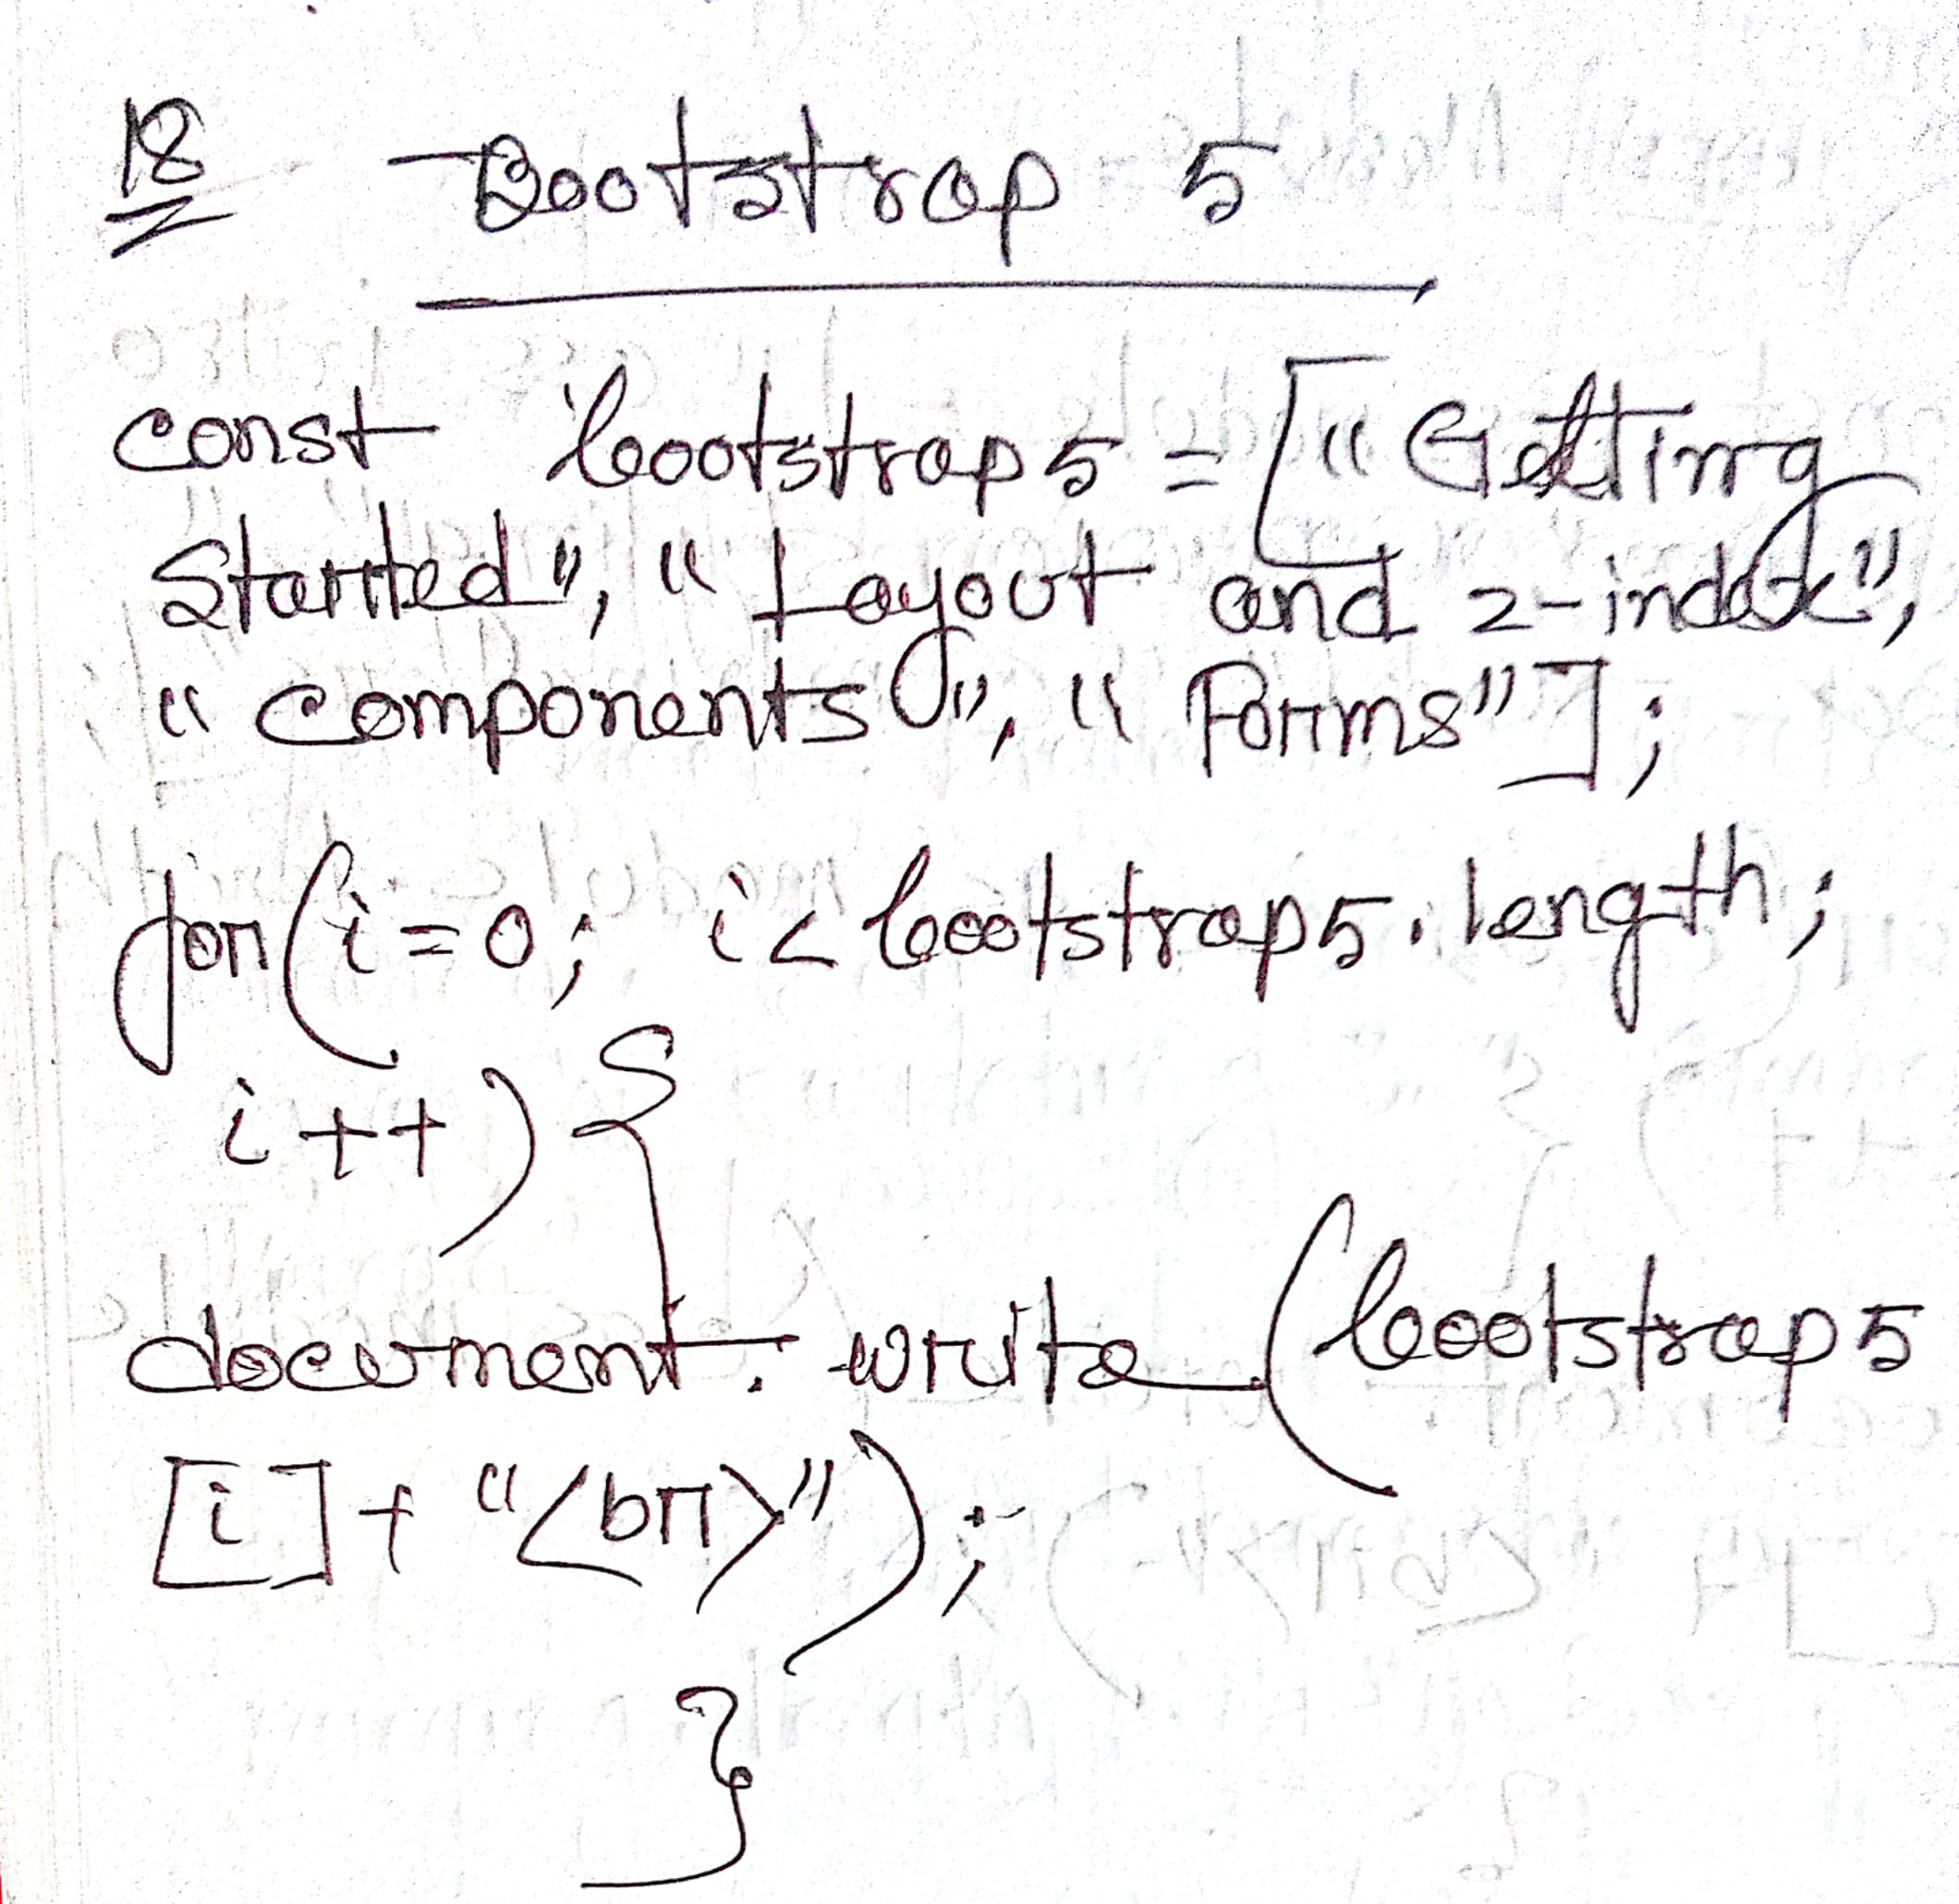 18 Bootstrap 5
const bootstrap5 = ["Getting
Started", "Layout and z-index",
"components", "Forms"];
for(i=0; i< bootstrap5.length;
i++) {
document.write(bootstrap5
[i]+ "<br>");
}